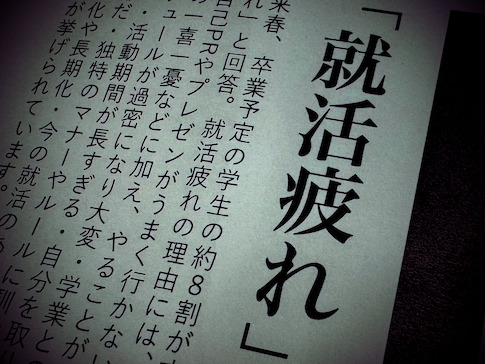 「就活疲れ」
来春、卒業予定の学生の約8割が
れ」と回答。就活疲れの理由には、
自己PRやプレゼンがうまく行かない
の一喜一憂などに加え、やることが
ュールが過密になり大変・学業と
・活動期間が長すぎる・自分を
だ・独特のマナーやルールに
化や長期化・今の就活の
が挙げられています。